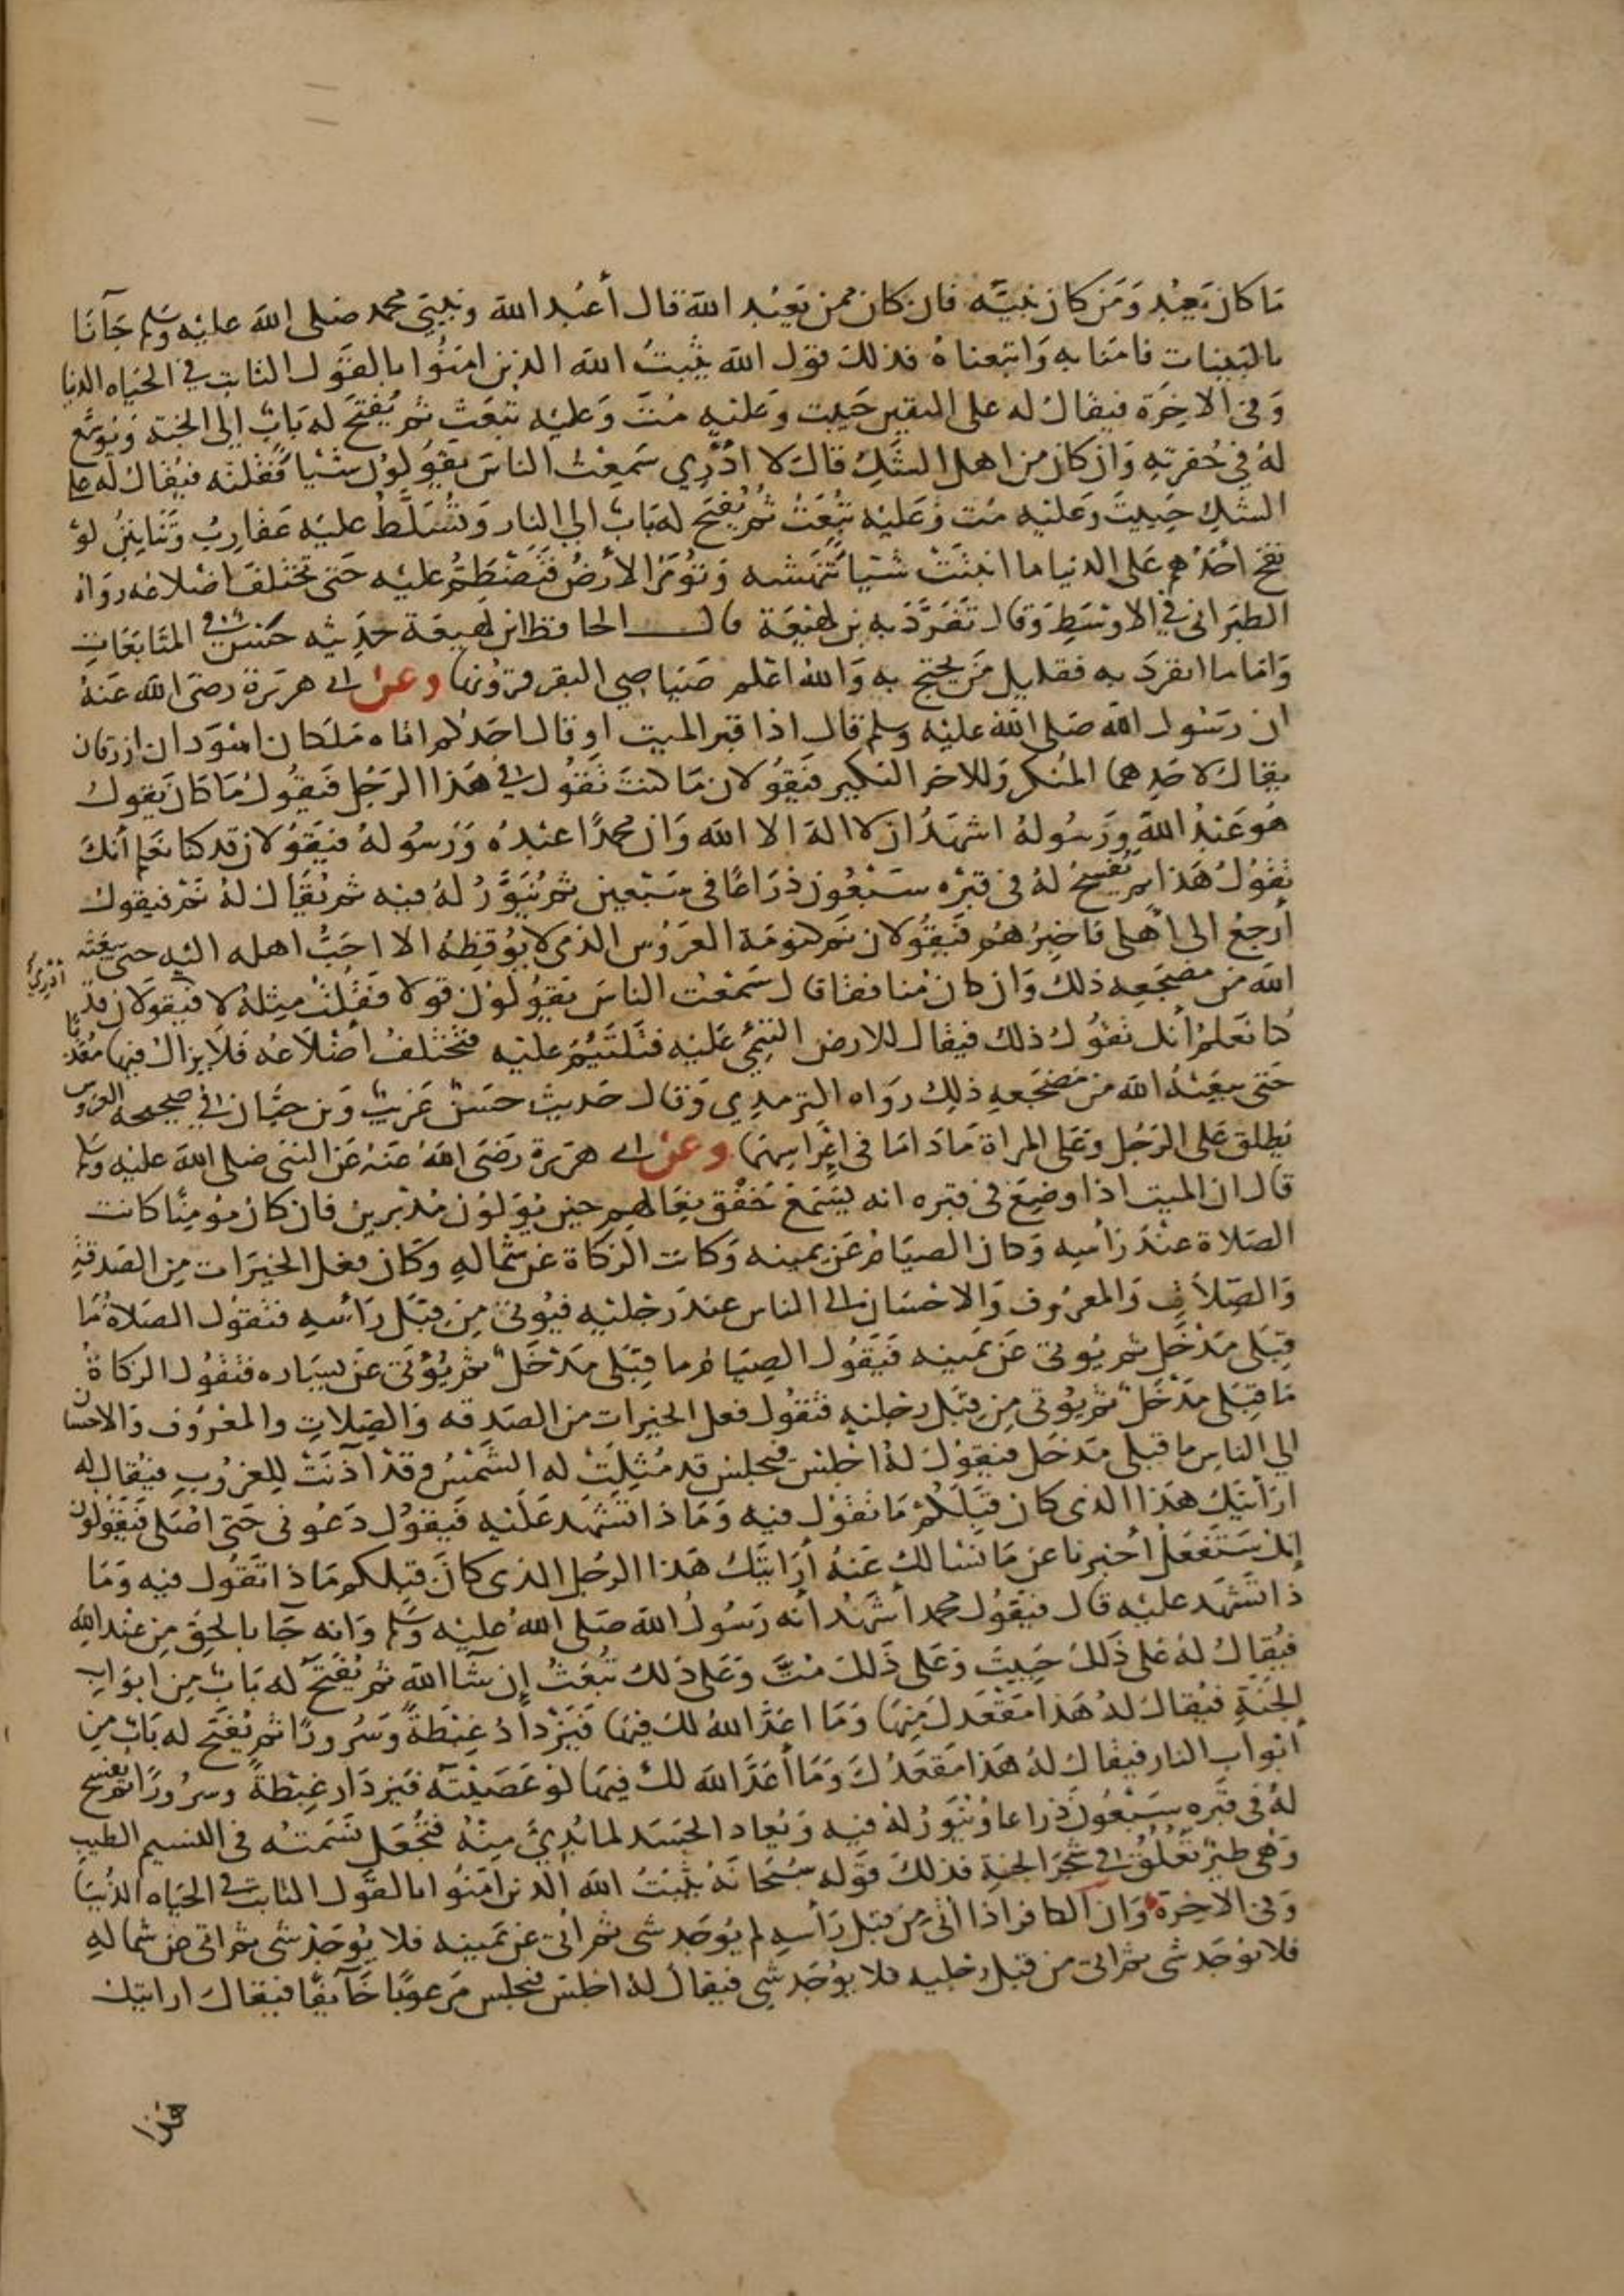 ما كان يعبد ومن كان نبيه فان كان ممن يعبد الله قال أعبد الله ونبيي محمد صلى الله عليه وسلم جآنا
بالبينات فامنا به واتبعناه فذلك قول الله يثبت الله الذين امنوا بالقول الثابت في الحياه الدنيا
وفي الاخرة فيقال له على اليقين حييت وعليه مت وعليه تبعث ثم يفتح له باب إلى الجنة ويوسع
له في حفرته وان كان من اهل الشك قال لا ادري سمعت الناس يقولون شيا فقلته فيقال له على
الشك حييت وعليه مت وعليه تبعث ثم يفتح له باب الى النار وتسلط عليه عقارب وتنانين لو
نفخ احدهم على الدنيا ما انبتت شيا تنهشه وتؤمر الأرض فتضطم عليه حتى تختلف اضلاعه رواه
الطبراني في الاوسط وقال تفرد به بن لهيعة قال الحافظ ابن لهيعة حديثه حسن في المتابعات
واما ما انفرد به فقليل من يحتج به والله اعلم صياصي البقر قرونها وعن ابي هريرة رضي الله عنه
ان رسول الله صلى الله عليه وسلم قال اذا قبر الميت او قال احدكم اتاه ملكان اسودان ازرقان
يقال لاحدهما المنكر وللاخر النكير فيقولان ما كنت تقول في هذا الرجل فيقول ما كان يقول
هو عبد الله ورسوله اشهد ان لا اله الا الله وان محمدا عبده ورسوله فيقولان قد كنا نعلم أنك
تقول هذا ثم يفسح له في قبره سبعون ذراعا في سبعين ثم ينور له فيه ثم يقال له نم فيقول
أرجع الى اهلي فاخبرهم فيقولان نم كنومة العروس الذي لا يوقظه الا احب اهله اليه حتى يبعثه
الله من مضجعه ذلك وان كان منافقا قال سمعت الناس يقولون قولا فقلت مثله لا ادري فيقولان قد
كنا نعلم أنك تقول ذلك فيقال للارض التئمي عليه فتلتئم عليه فتختلف أضلاعه فلا يزال فيها معذبا
حتى يبعثه الله من مضجعه ذلك رواه الترمدي وقال حديث حسن غريب وبن حبان في صحيحه العروس
يطلق على الرجل وعلى المراة ما داما في اعراسهما وعن ابي هريرة رضي الله عنه عن النبي صلى الله عليه وسلم
قال ان الميت اذا وضع في قبره انه يسمع خفق نعالهم حين يولون مدبرين فان كان مؤمنا كانت
الصلاة عند رأسه وكان الصيام عن يمينه وكانت الزكاة عن شماله وكان فعل الخيرات من الصدقة
والصلاة والمعروف والاحسان الى الناس عند رجليه فيؤتى من قبل رأسه فتقول الصلاة ما
قبلي مدخل ثم يؤتى عن يمينه فيقول الصيام ما قبلي مدخل ثم يؤتى عن يساره فتقول الزكاة
ما قبلي مدخل ثم يؤتى من قبل رجليه فتقول فعل الخيرات من الصدقه والصلات والمعروف والاحسان
الي الناس ما قبلي مدخل فيقول له اجلس فيجلس قد مثلت له الشمس وقد آذنت للغروب فيقال له
ارأيتك هذا الذي كان قبلكم ما تقول فيه وماذا تشهد عليه فيقول دعوني حتى اصلي فيقولون
إنك ستفعل أخبرنا عن ما نسالك عنه أرايتك هذا الرجل الذي كان قبلكم ماذا تقول فيه وما
ذا تشهد عليه قال فيقول محمد أشهد أنه رسول الله صلى الله عليه وسلم وانه جا بالحق من عند الله
فيقال له على ذلك حييت وعلى ذلك مت وعلى ذلك تبعث إن شا الله ثم يفتح له باب من ابواب
الجنة فيقال له هذا مقعدك منها وما اعد الله لك فيها فيزداد غبطة وسرورا ثم يفتح له باب من
أبواب النار فيقال له هذا مقعدك وما أعد الله لك فيها لو عصيته فيزداد غبطة وسرورا ثم يفسح
له في قبره سبعون ذراعا وينور له فيه ويعاد الجسد لما بدئ منه فتجعل نسمته في النسيم الطيب
وهي طير تعلق في شجر الجنة فذلك قوله سبحانه يثبت الله الذين امنوا بالقول الثابت في الحياه الدنيا
وفي الاخرة وان الكافر اذا أتى من قبل رأسه لم يوجد شي ثم أتى عن يمينه فلا يوجد شي ثم اتى عن شماله
فلا يوجد شي ثم اتى من قبل رجليه فلا يوجد شي فيقال له اجلس فيجلس مرعوبا خآيفا فيقال ارايتك
هذا